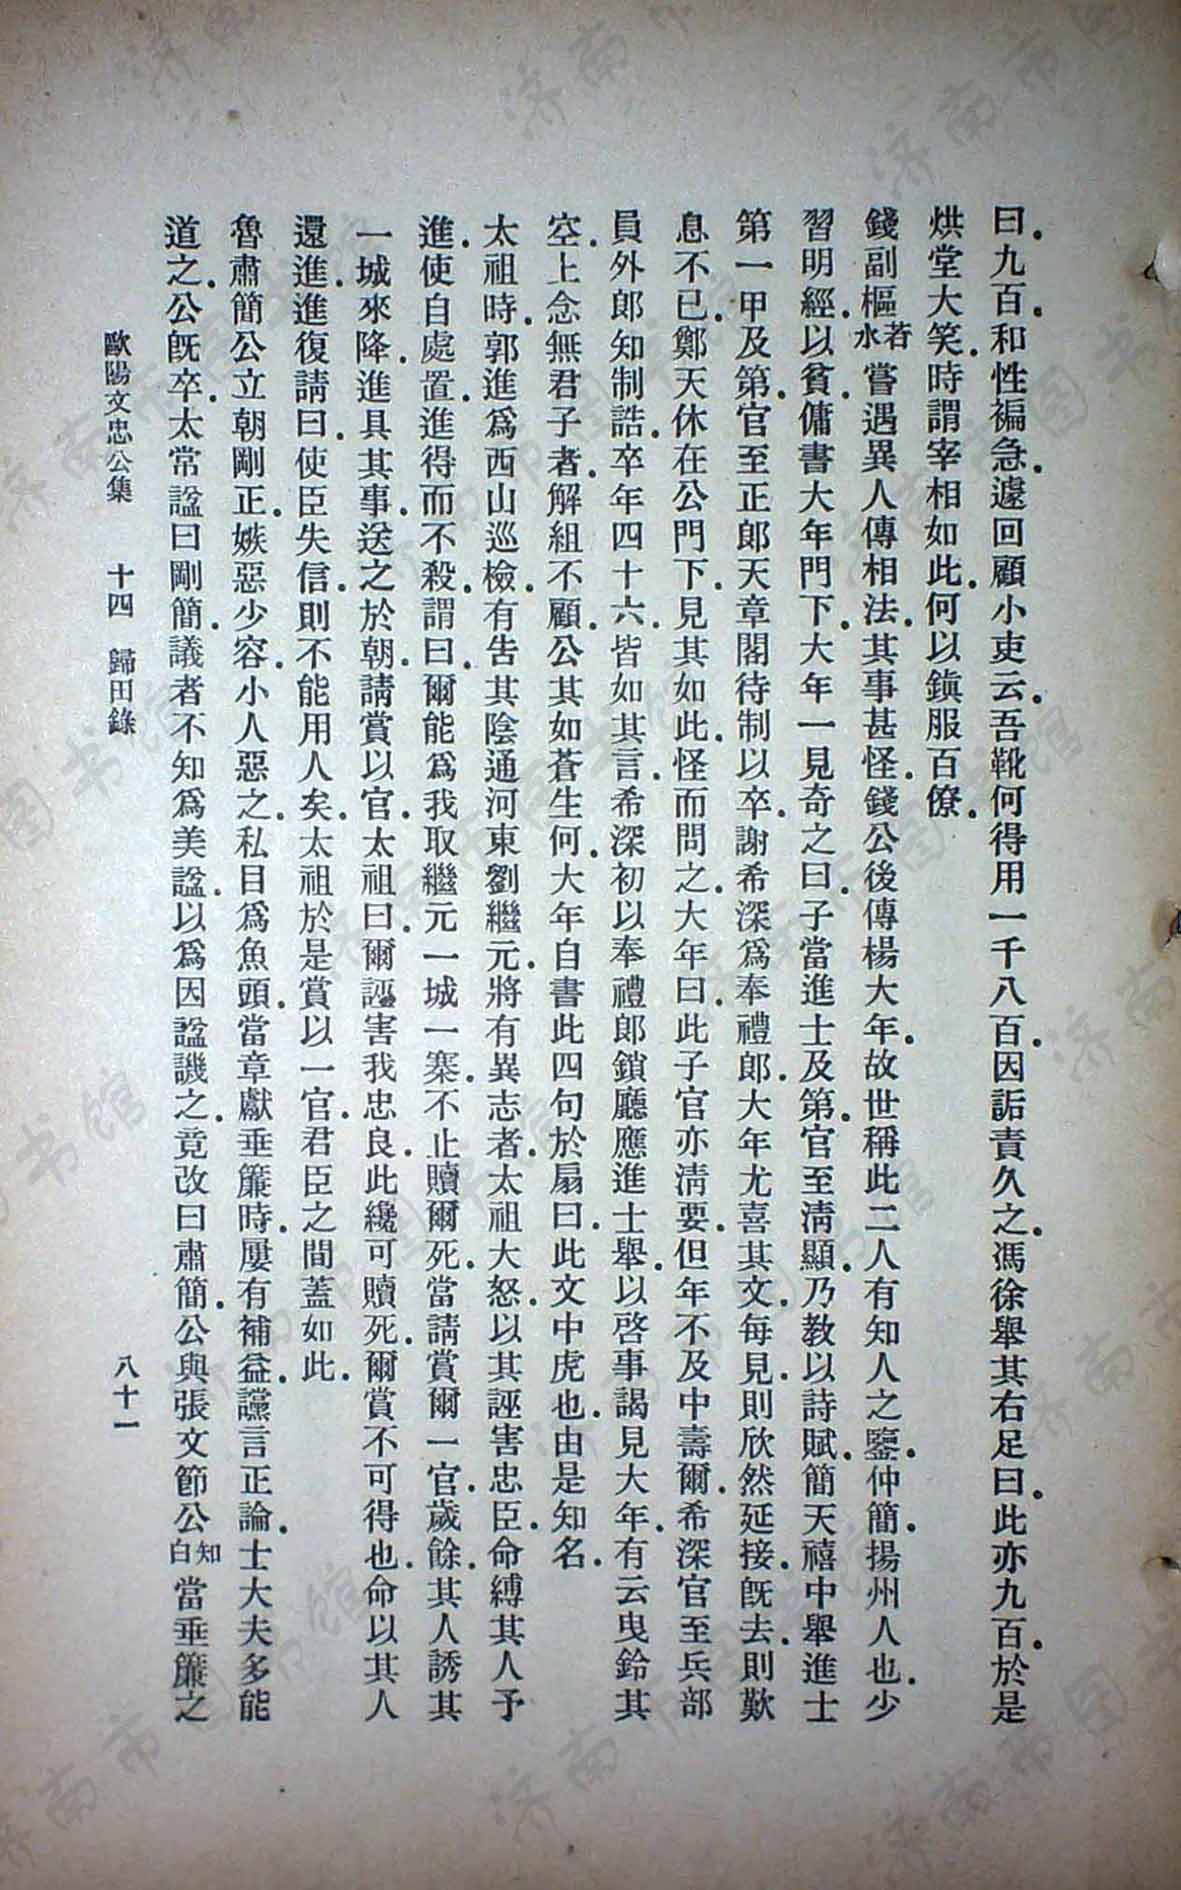 曰.九百.和性褊急.遽回顧小吏云.吾靴何得用一千八百.因詬責久之.馮徐舉其右足曰.此亦九百.於是
烘堂大笑.時謂宰相如此.何以鎭服百僚.
錢副樞若水嘗遇異人傳相法.其事甚怪.錢公後傳楊大年.故世稱此二人有知人之鑒.仲簡.揚州人也.少
習明經.以貧.傭書大年門下.大年一見奇之曰.子當進士及第.官至淸顯.乃教以詩賦.簡天禧中舉進士
第一甲及第.官至正郎天章閣待制以卒.謝希深爲奉禮郎.大年尤喜其文.每見.則欣然延接.旣去.則歎
息不已.鄭天休在公門下.見其如此.怪而問之.大年曰.此子官亦淸要.但年不及中壽爾.希深官至兵部
員外郎知制誥.卒年四十六.皆如其言.希深初以奉禮郎鎖廳應進士舉.以啓事謁見大年.有云曳鈴其
空.上念無君子者.解組不顧.公其如蒼生何.大年自書此四句於扇曰.此文中虎也.由是知名.
太祖時.郭進爲西山巡檢.有吿其陰通河東劉繼元.將有異志者.太祖大怒.以其誣害忠臣.命縛其人予
進.使自處置.進得而不殺.謂曰.爾能爲我取繼元一城一寨.不止贖爾死.當請賞爾一官.歲餘.其人誘其
一城來降.進具其事.送之於朝.請賞以官.太祖曰.爾誣害我忠良.此纔可贖死.爾賞不可得也.命以其人
還進.進復請曰.使臣失信.則不能用人矣.太祖於是賞以一官.君臣之間蓋如此.
魯肅簡公立朝剛正.嫉惡少容.小人惡之.私目爲魚頭.當章獻垂簾時.屢有補益.讜言正論.士大夫多能
道之.公旣卒.太常諡曰剛簡.議者不知爲美諡.以爲因諡譏之.竟改曰肅簡.公與張文節公知白當垂簾之
歐陽文忠公集 十四 歸田錄 八十一
济南市图书馆